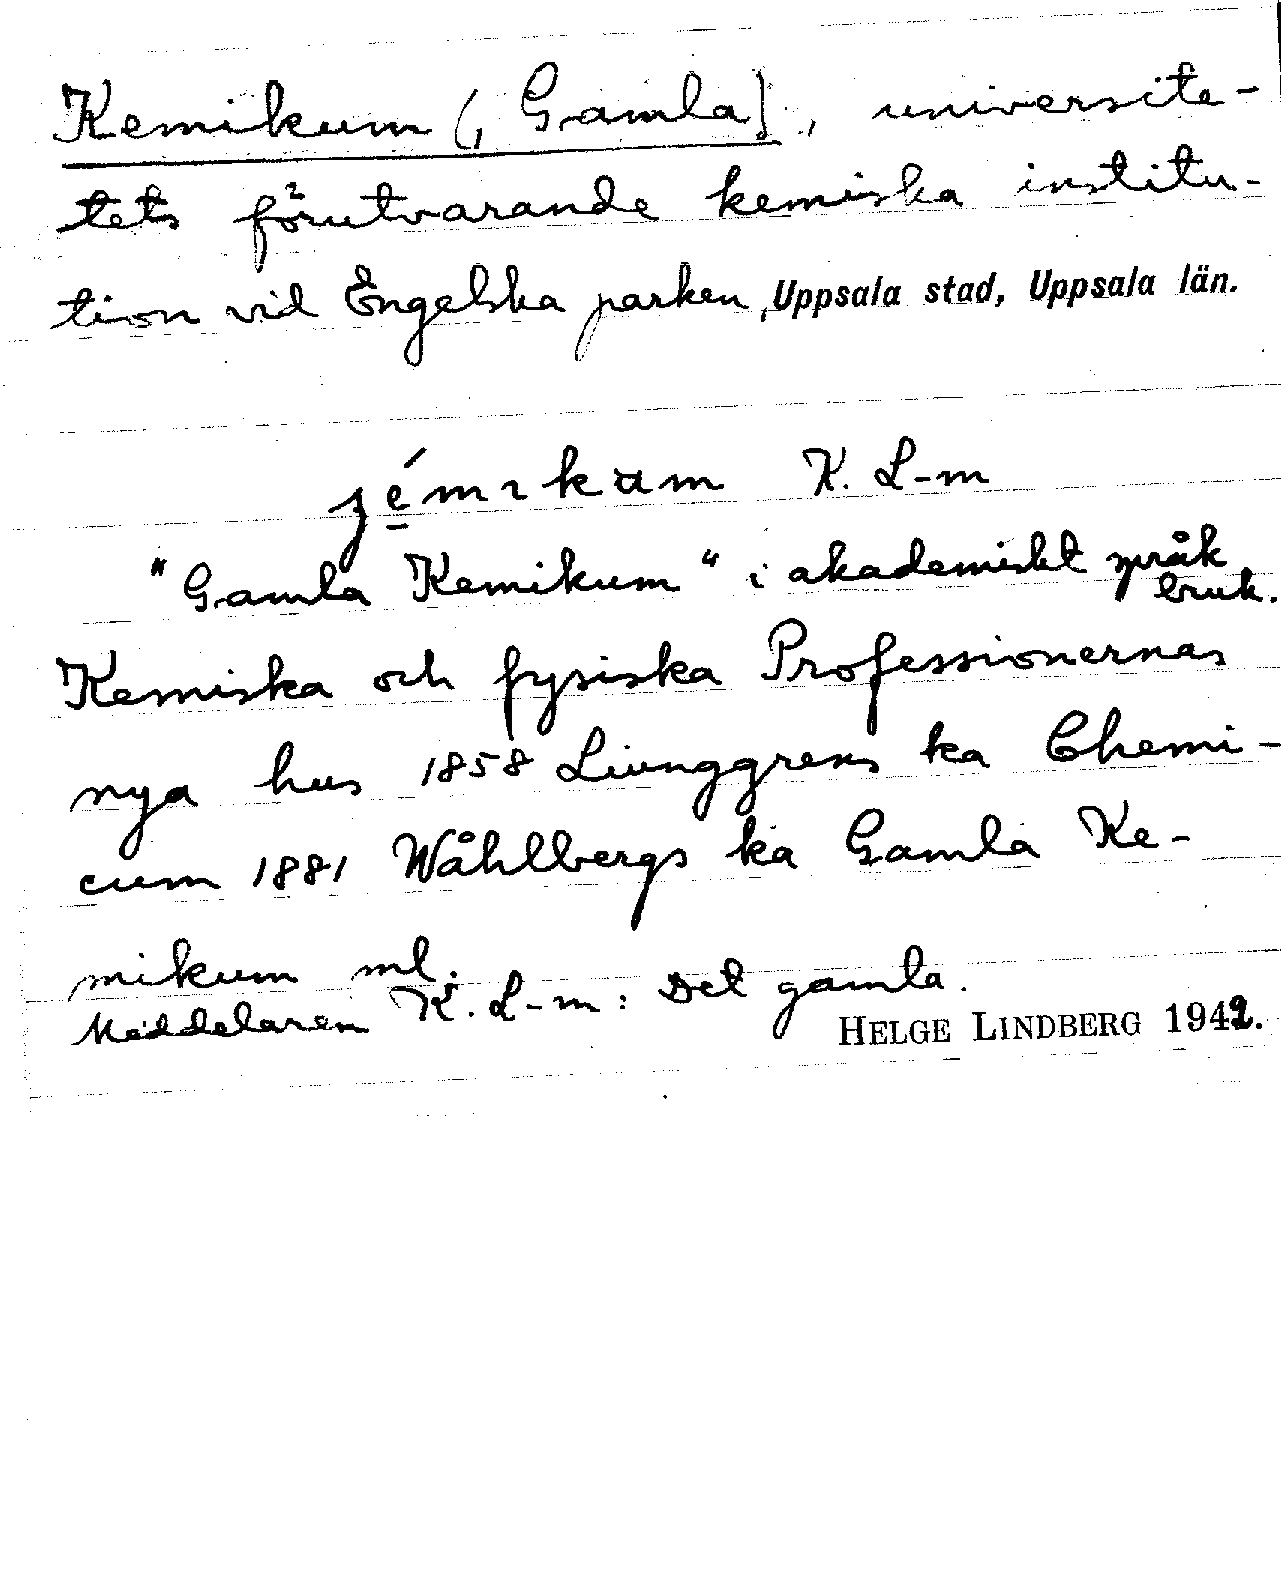 Kemikum (, Gamla), universite-
tets förutvarande kemiska institu-
tion vid Engelska parken, Uppsala stad, Uppsala län.
K. L-m
"Gamla Kemikum" i akademiskt språk
bruk.
Kemiska och fysiska Professionernas
nya hus 1858 Liunggrens ka Chemi-
cum 1881 Wåhlbergs ka Gamla Ke-
mikum ml.
Meddelaren K. L-m: Det gamla.
HELGE LINDBERG 1942.